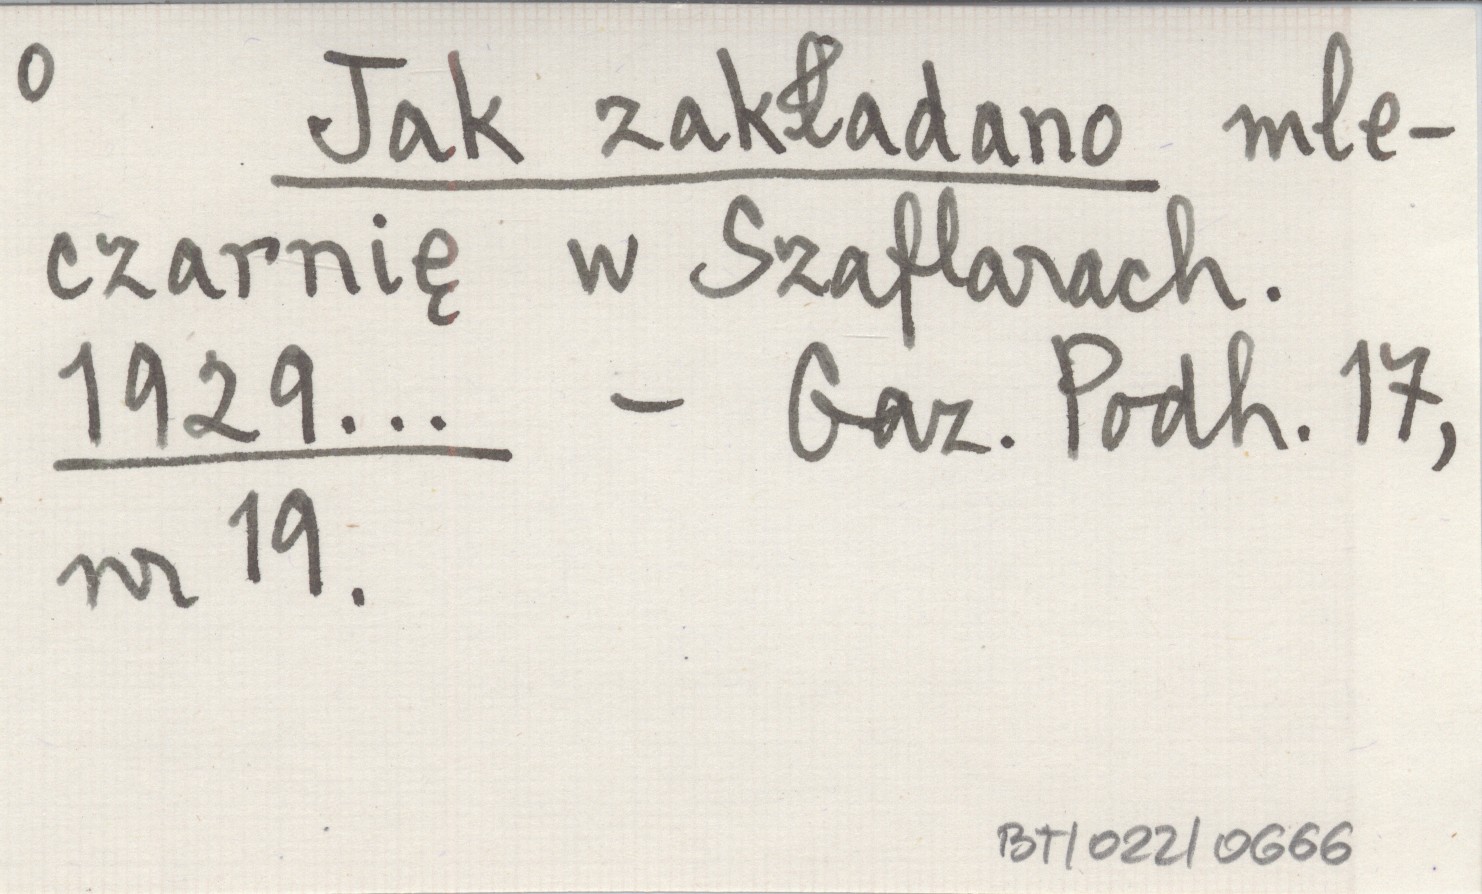 o Jak zakładano mle-
czarnię w Szaflarach.
1929... - Gaz. Podh. 17,
nr 19.
BT/022/0666